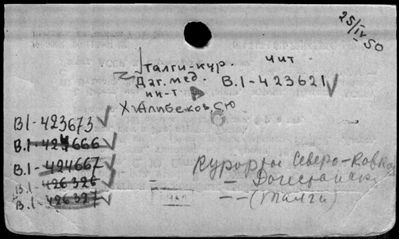 25/IV 50
чит
Талги-кур.
Даг. мед. В.1-423621
ин-т
Х. Алибеков
В.1-423673
В.1-424666
В.1-424667
В.1-426326
В.1-426327
Курорты Северо-Кавказ
— Дагестанск
— (Талги)